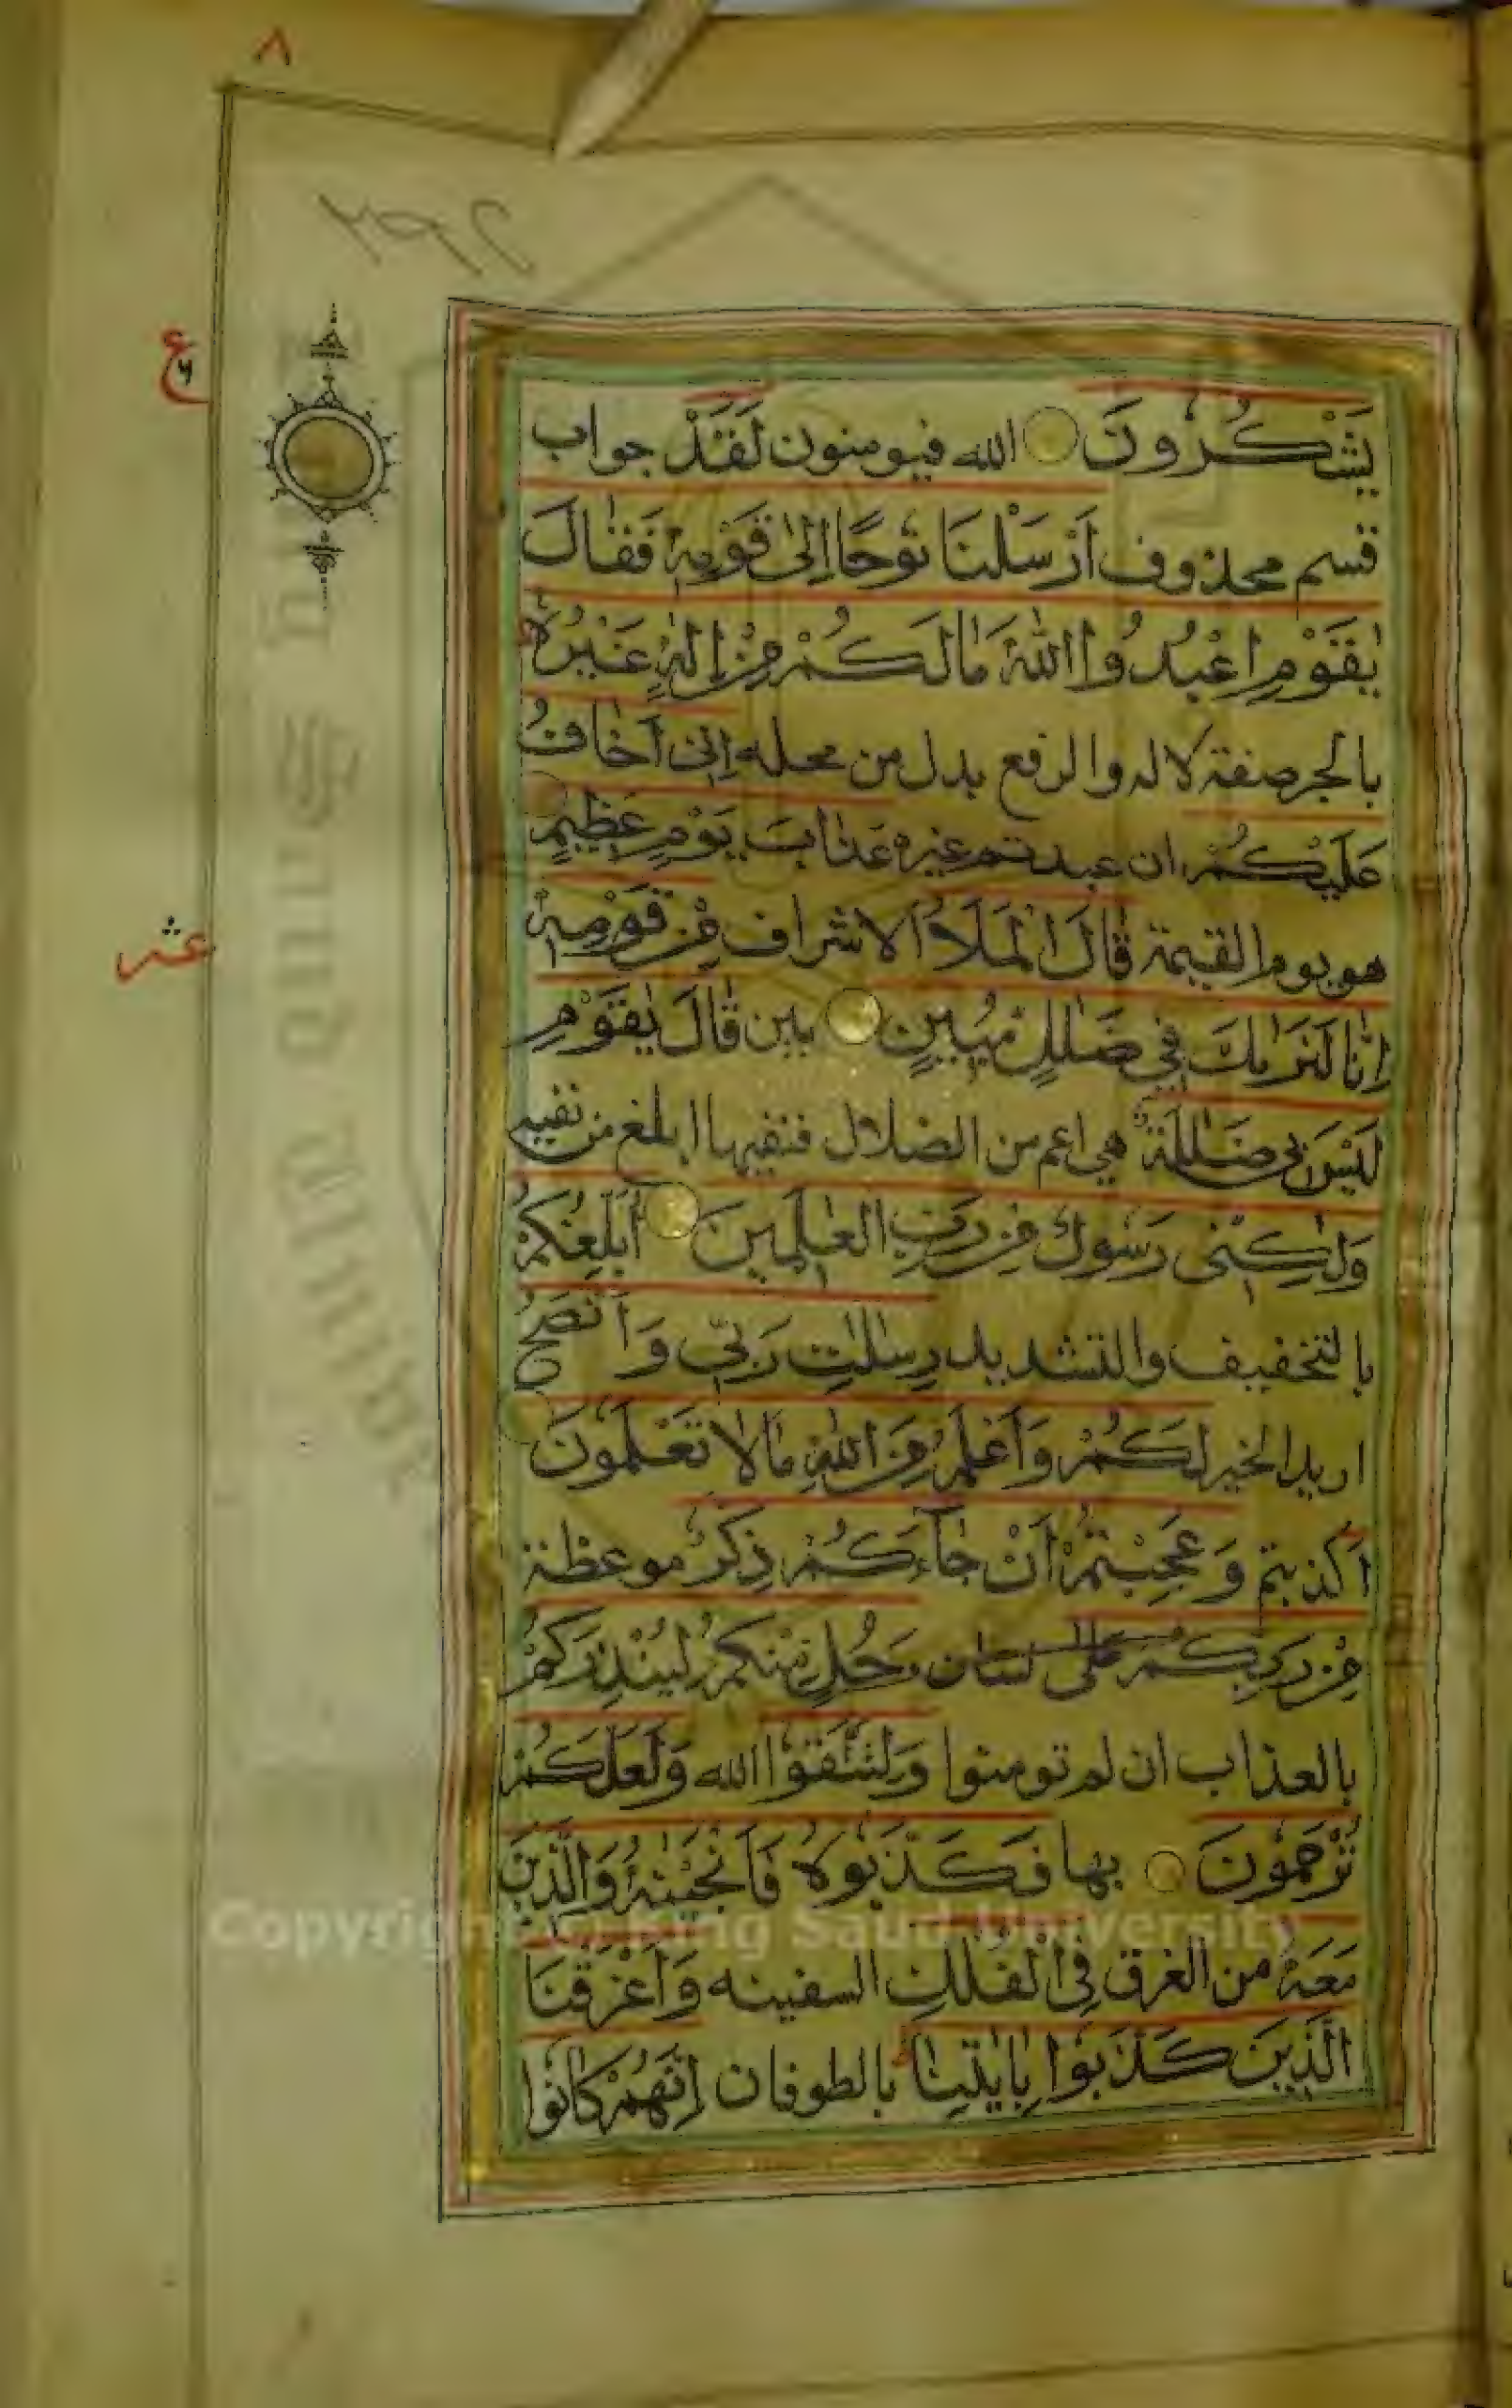 ٨
٢٩٢
ع
٦
يَشْكُرُونَ الله فيومنون لَقَدْ جواب
قسم محذوف اَرْسَلْنَا نُوْحًا اِلىٰ قَوْمِهٖ فَقَالَ
يٰقَوْمِ اعْبُدُوا اللّٰهَ مَا لَكُمْ مِنْ اِلٰهٍ غَيْرُهٗ
بالجر صفة لاله والرفع بدل من محله اِنِّىْ اَخَافُ
عَلَيْكُمْ ان عبدتم غيره عَذَابَ يَوْمٍ عَظِيْمٍ
هو يوم القيمة قَالَ الْمَلَاُ الاشراف مِنْ قَوْمِهٖ
عشر
اِنَّا لَنَرٰىكَ فِيْ ضَلٰلٍ مُبِيْنٍ بين قَالَ يٰقَوْمِ
لَيْسَ بِىْ ضَلٰلَةٌ هي اعم من الضلال فنفيها ابلغ من نفيه
وَلٰكِنِّىْ رَسُوْلٌ مِنْ رَبِّ الْعٰلَمِيْنَ اُبَلِّغُكُمْ
بالتخفيف والتشديد رِسٰلٰتِ رَبِّيْ وَاَنْصَحُ
اريد الخير لَكُمْ وَاَعْلَمُ مِنَ اللّٰهِ مَا لَا تَعْلَمُوْنَ
اَ كذبتم وَعَجِبْتُمْ اَنْ جَآءَكُمْ ذِكْرٌ موعظة
مِنْ رَبِّكُمْ عَلٰى لسان رَجُلٍ مِنْكُمْ لِيُنْذِرَكُمْ
بالعذاب ان لم تومنوا وَلِتَتَّقُوْا الله وَلَعَلَّكُمْ
تُرْحَمُوْنَ بها فَكَذَّبُوْهُ فَاَنْجَيْنٰهُ وَالَّذِيْنَ
مَعَهٗ من الغرق فِى الْفُلْكِ السفينه وَاَغْرَقْنَا
الَّذِيْنَ كَذَّبُوْا بِاٰيٰتِنَا بالطوفان اِنَّهُمْ كَانُوْا
Copyright © King Saud University